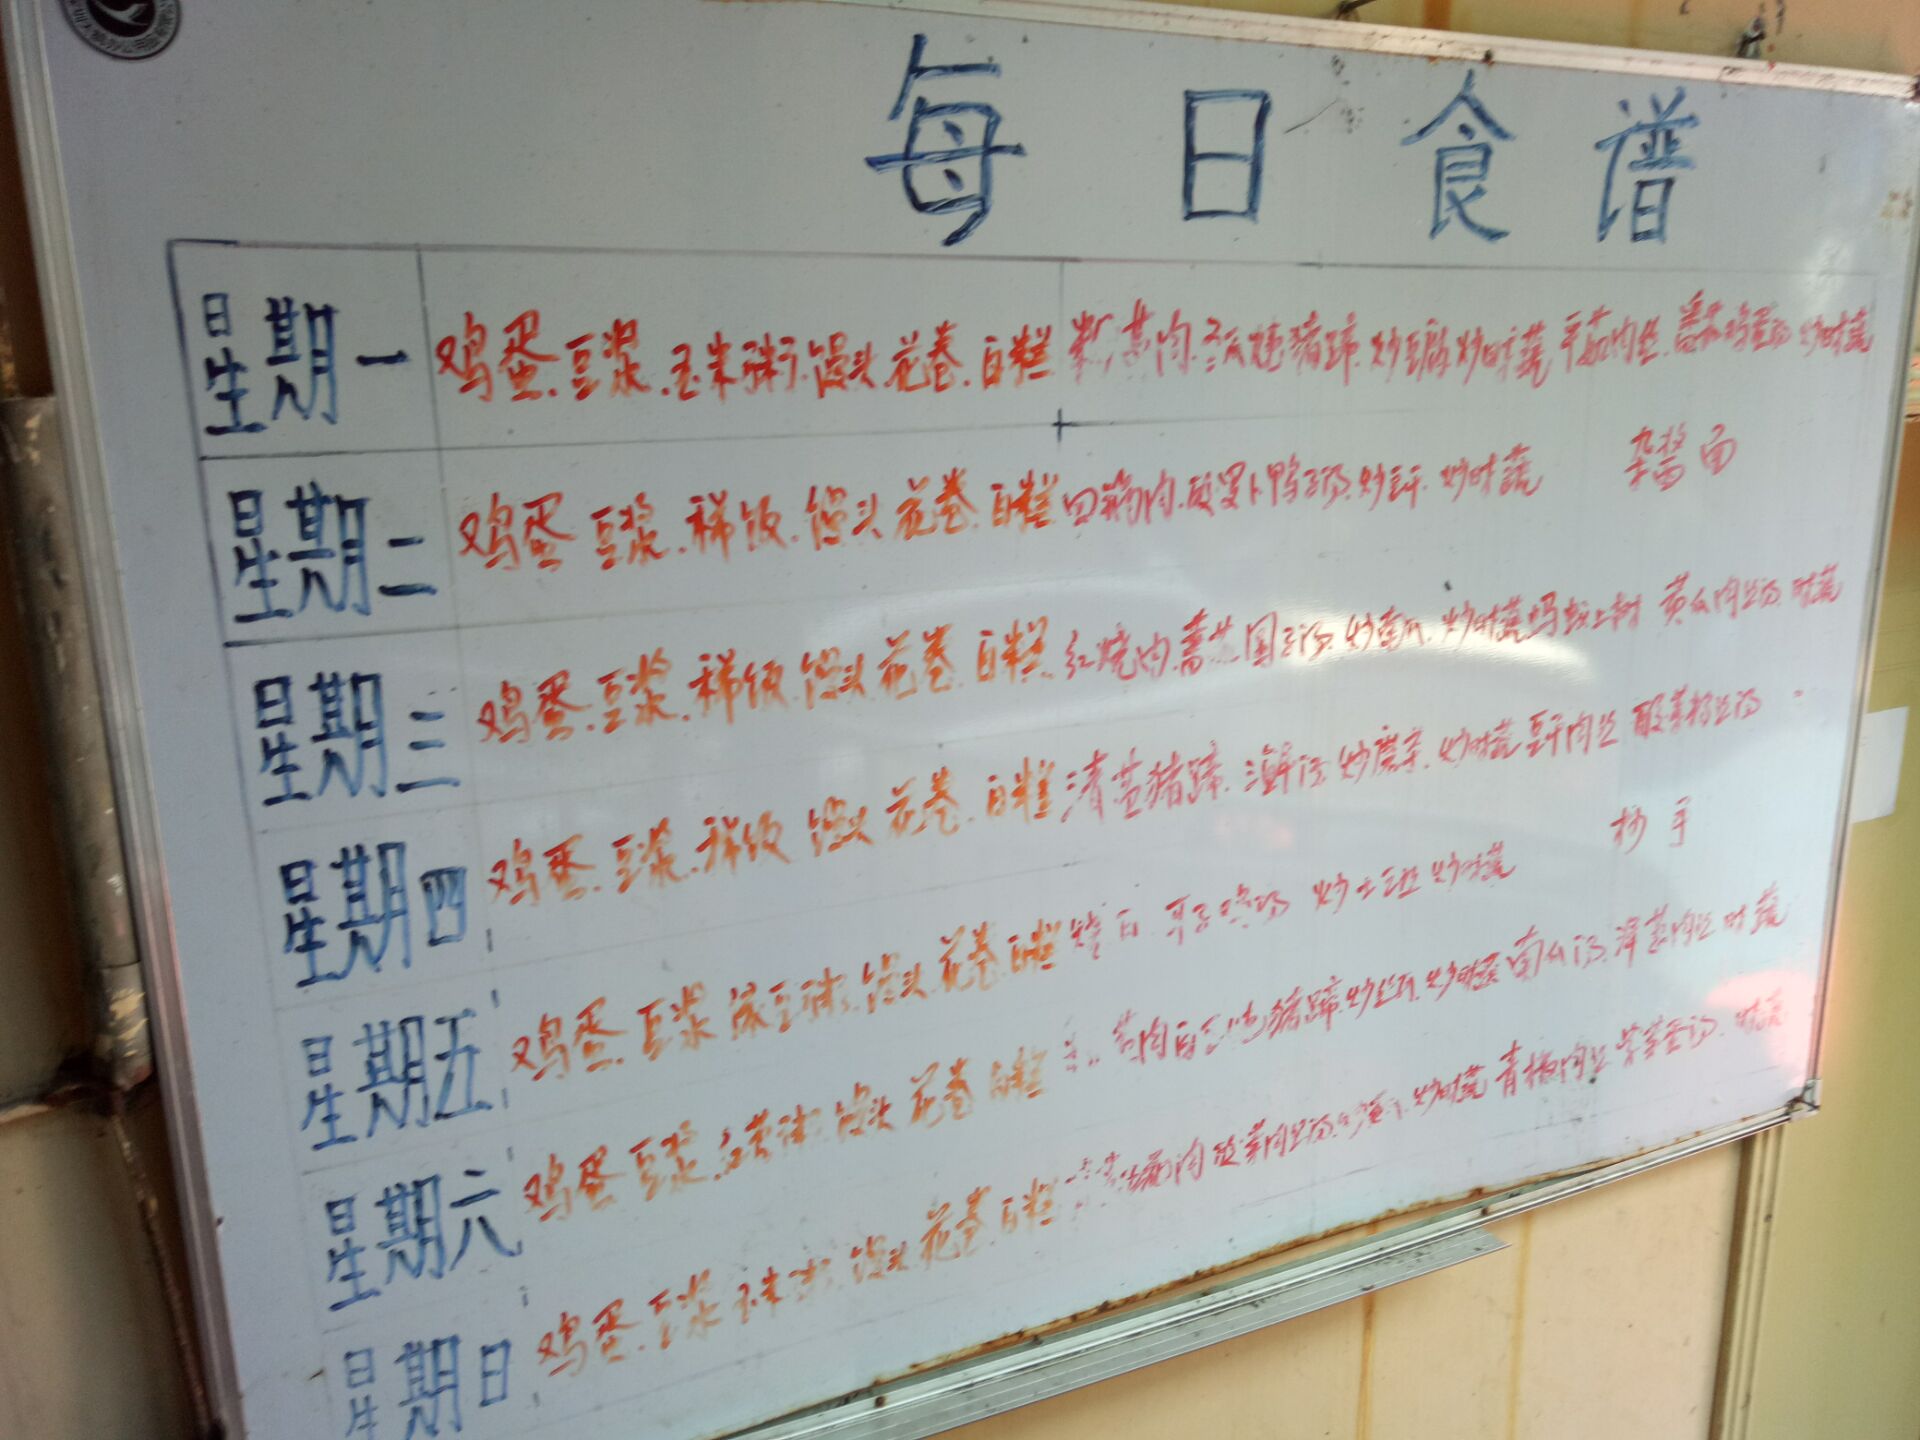 每日食谱
星期一 鸡蛋.豆浆.玉米粥.馒头.花卷.白糕 肉.炖猪蹄.炒时蔬 平菇肉丝.番茄鸡蛋汤.炒时蔬
星期二 鸡蛋 豆浆.稀饭.馒头 花卷.白糕 回锅肉.酸萝卜鸭子汤.炒豆干.炒时蔬 杂酱面
星期三 鸡蛋.豆浆.稀饭.馒头 花卷.白糕 红烧肉.圆子汤.炒南瓜.炒时蔬 蚂蚁上树 黄瓜肉丝汤.时蔬
星期四 鸡蛋.豆浆.稀饭 馒头 花卷.白糕 猪蹄.海鲜汤.炒魔芋.炒时蔬 豆干肉丝 酸菜粉丝汤
星期五 鸡蛋.豆浆 绿豆粥.馒头.花卷.白糕 烧白.炒土豆丝 炒时蔬 抄手
星期六 鸡蛋 豆浆.粥.馒头 花卷 白糕 肉 猪蹄.炒时蔬 南瓜汤.洋葱肉丝 时蔬
星期日 鸡蛋.豆浆 玉米粥.馒头 花卷.白糕 锅肉 酸菜肉丝汤.炒时蔬 青椒肉丝 紫菜蛋汤.时蔬